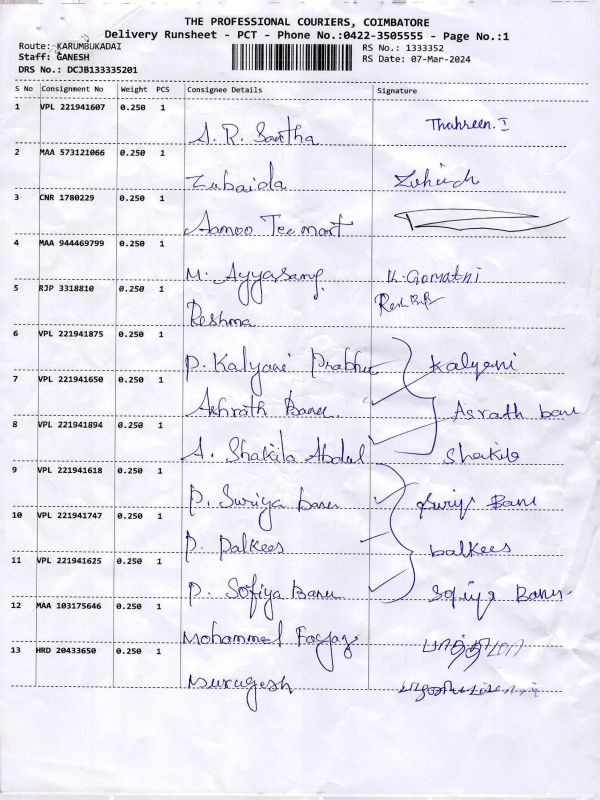 THE PROFESSIONAL COURIERS, COIMBATORE
Delivery Runsheet - PCT - Phone No.:0422-3505555 - Page No.:1
Route: KARUMBUKADAI
RS No.: 1333352
Staff: GANESH
RS Date: 07-Mar-2024
DRS No.: DCJB133335201
S No Consignment No Weight PCS Consignee Details Signature
1 VPL 221941607 0.250 1
A. R. Santha Thahreen. I
2 MAA 573121066 0.250 1
Zubaida
3 CNR 1780229 0.250 1
Aamoo Tea mart
4 MAA 944469799 0.250 1
M. Ayyasamy K. Gomathi
5 RJP 3318810 0.250 1
Reshma
6 VPL 221941875 0.250 1
P. Kalyani Prabhu Kalyani
7 VPL 221941650 0.250 1
Ashrath Banu. Asrath banu
8 VPL 221941894 0.250 1
A. Shakila Abdul Shakila
9 VPL 221941618 0.250 1
P. Suriya banu Suriya Banu
10 VPL 221941747 0.250 1
P. Palkees balkees
11 VPL 221941625 0.250 1
P. Sofiya Banu Sofiya Banu
12 MAA 103175646 0.250 1
Mohammed பாத்திமா
13 HRD 20433650 0.250 1
Murugesh